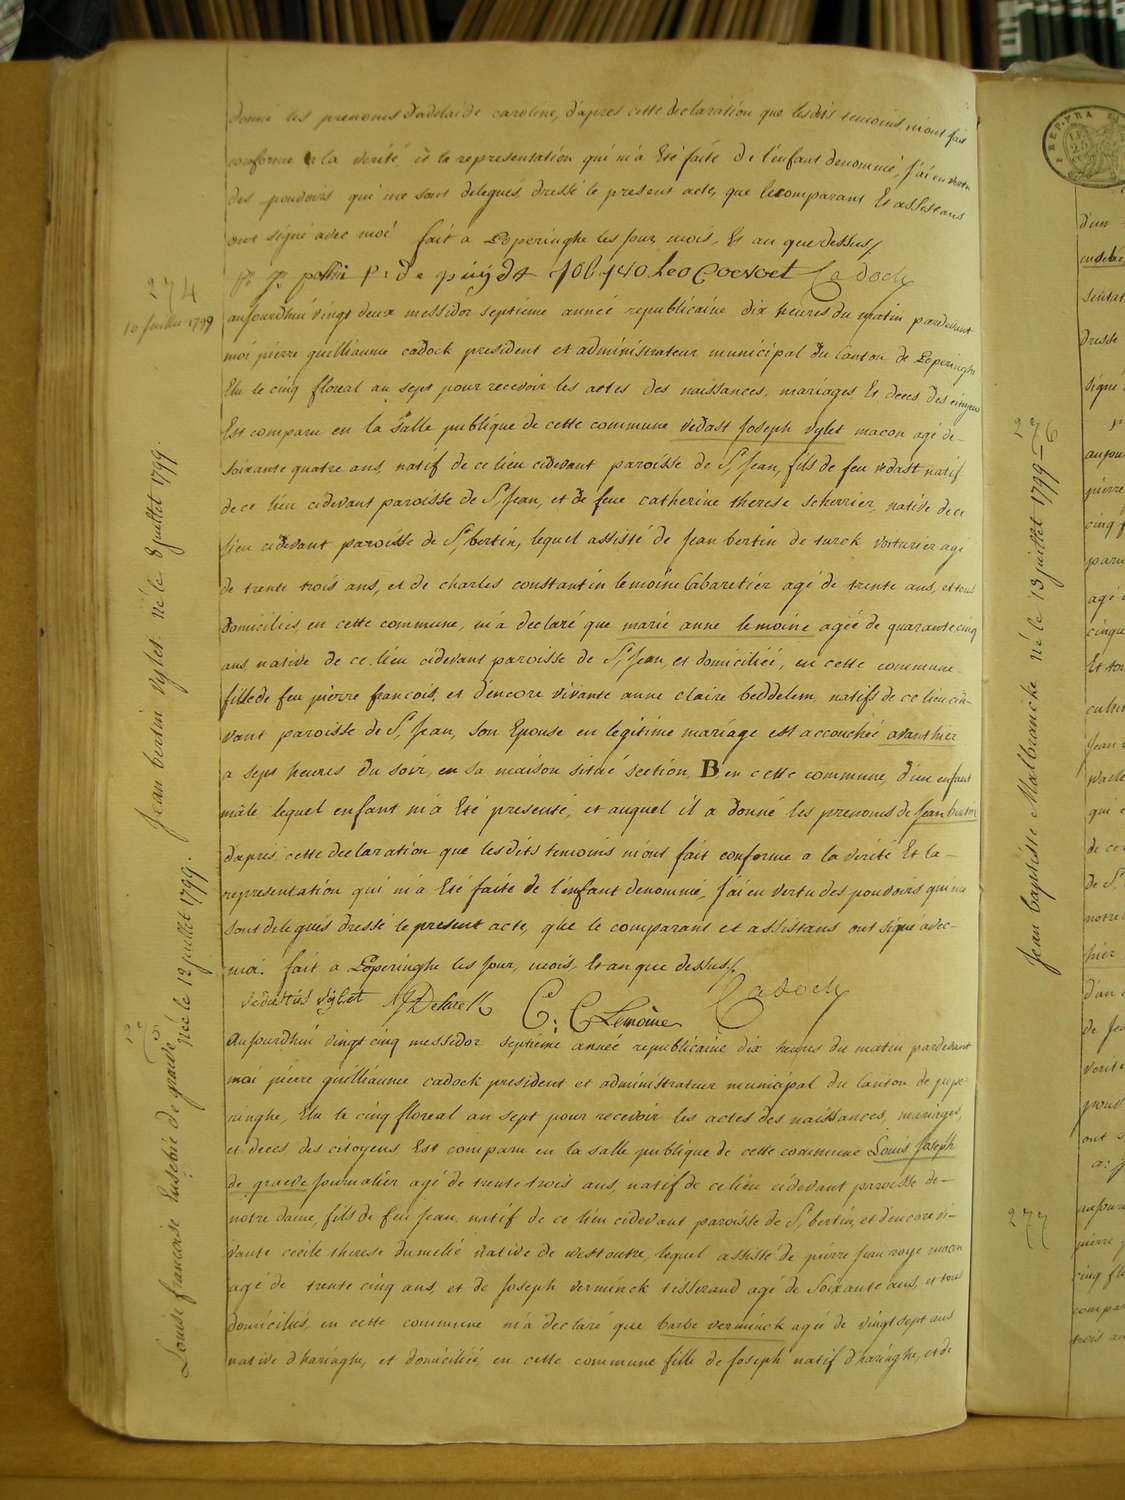 donné les prenoms d'adelaide caroline, d'apres cette declaration que lesdits temoins m'ont fait
conforme a la verité et la representation qui m'a Eté faite de l'enfant denommé, j'ai en vertu
des pouvoirs qui me sont delegués, dressé le present acte, que le comparant Et assistans
ont signé avec moi fait a Poperinghe les jour, mois, Et an que dessus/
p: de puydt Cadock
274
10 juillet 1799
aujourdhui vingt deux messidor septieme année republicaine dix heures du matin pardevant
moi pierre guilliaume cadock president et administrateur municipal du Canton de Poperinghe
Elu le cinq floreal an sept pour recevoir les actes des naissances, mariages Et deces des citoyens
Est comparu en la Salle publique de cette commune vedast Joseph sylet macon agé de-
soixante quatre ans, natif de ce lieu cidevant paroisse de St Jean, fils de feu vedast natif
de ce lieu cidevant paroisse de St Jean, et de feue catherine therese scherrier, native de ce
lieu cidevant paroisse de St bertin, lequel assisté de Jean bertin de turck voiturier agé
de trente trois ans, et de charles constantin lemoine Cabaretier agé de trente ans, et tous
domiciliés en cette commune, m'a declaré que marie anne lemoine agée de quarante cinq
ans native de ce lieu cidevant paroisse de St Jean, et domiciliée, en cette commune-
fille de feu pierre francois, et d'encore vivante anne claire beddelem, natifs de ce lieu cide-
vant paroisse de St Jean, son Epouse en legitime mariage est accouchée avanthier
a sept heures du soir, en sa maison situé section B en cette commune, d'un enfant
male lequel enfant m'a Eté presenté, et auquel il a donné les prenoms de Jean bertin
d'apres cette declaration que lesdits temoins m'ont fait conforme a la verité Et la-
representation qui m'a Eté faite de l'enfant denommé, j'ai en vertu des pouvoirs qui me
sont delegués dressé le present acte, que le comparant et assistans ont signé avec-
moi. fait a Poperinghe les jour, mois, Et an que dessus/.
sylet C: C Lemoine Cadock
Jean bertin sylet né le 8 juillet 1799.
Aujourdhui vingt cinq messidor septieme année republicaine dix heures du matin pardevant
moi pierre guilliaume cadock president et administrateur municipal du Canton de pope-
ringhe, Elu le cinq floreal an sept pour recevoir les actes des naissances, mariages,
et deces des citoyens, Est comparu en la salle publique de cette commune Louis Joseph
de graeve journalier agé de trente trois ans, natif de ce lieu cidevant paroisse de-
notre dame, fils de feu Jean natif de ce lieu cidevant paroisse de St bertin, et d'encore vi-
vante cecile therese dumelié native de westoutre, lequel assisté de pierre Jean roye macon
agé de trente cinq ans, et de Joseph verminck tisserand agé de soixante ans, et tous
domiciliés, en cette commune m'a declaré que barbe verminck agée de vingt sept ans
native d'haringhe, et domiciliée, en cette commune fille de Joseph natif d'haringhe, et de
Louise francoise Eusebie de graeve née le 12 juillet 1799.
276
Jean baptiste Malbrancke né le 13 juillet 1799
277
REP. FRA
d'un
eusebie
sentat
dresse
signé
aujou
pierre
cinq f
paru
agé
cinqu
Et to
culti
Jean
qui
de ce
de St
notre
hier
d'un
de Je
verité
pouv
ont s
aujour
pierre
cinq fl
compar
trois an